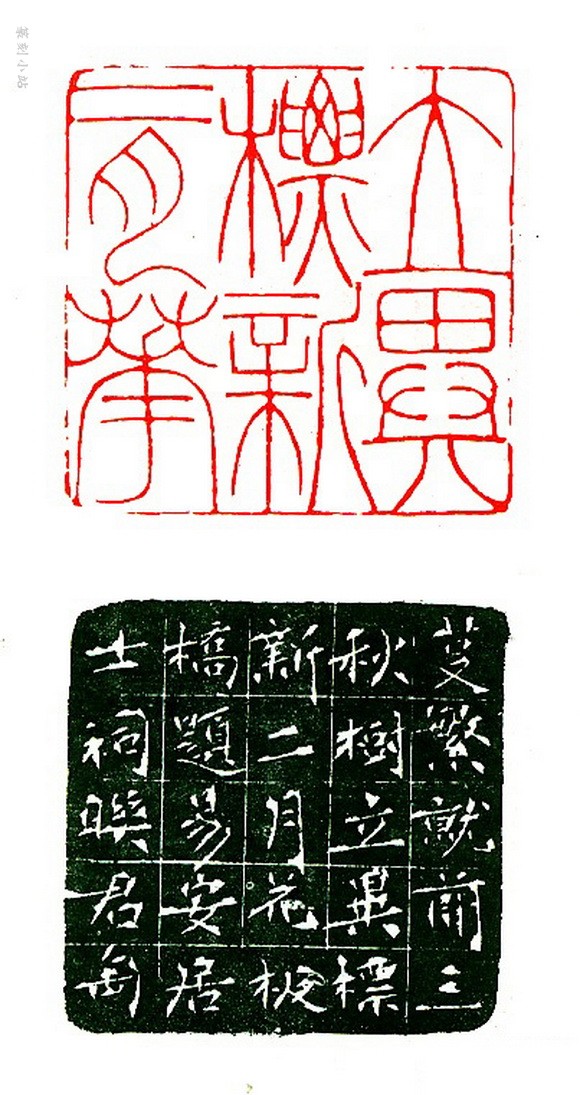 篆刻小站
立異
標新
二月華
芟繁就簡三
秋樹立異標
新二月花板
橋題易安居
士祠聯君匋